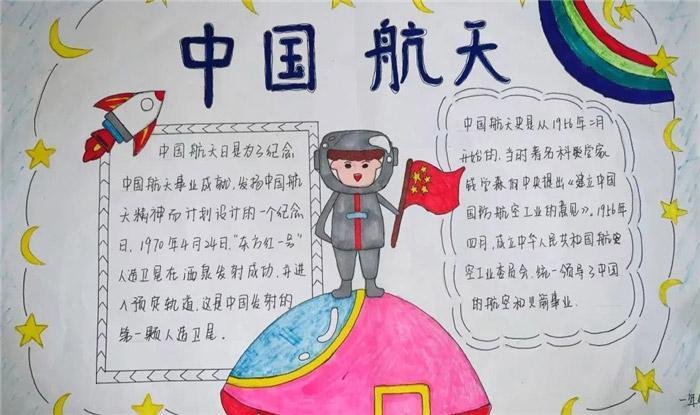 中国 航天
中国航天日是为了纪念
中国航天事业成就,发扬中国航
天精神而计划设计的一个纪念
日,1970年4月24日,"东方红一号"
人造卫星在酒泉发射成功,并进
入预定轨道,这是中国发射的
第一颗人造卫星。
中国航天史是从1956年二月
开始的,当时著名科学家
钱学森向中央提出《建立中国
国防航空工业的意见》。1956年
四月,成立中华人民共和国航空
工业委员会,统一领导了中国
的航空和火箭事业.